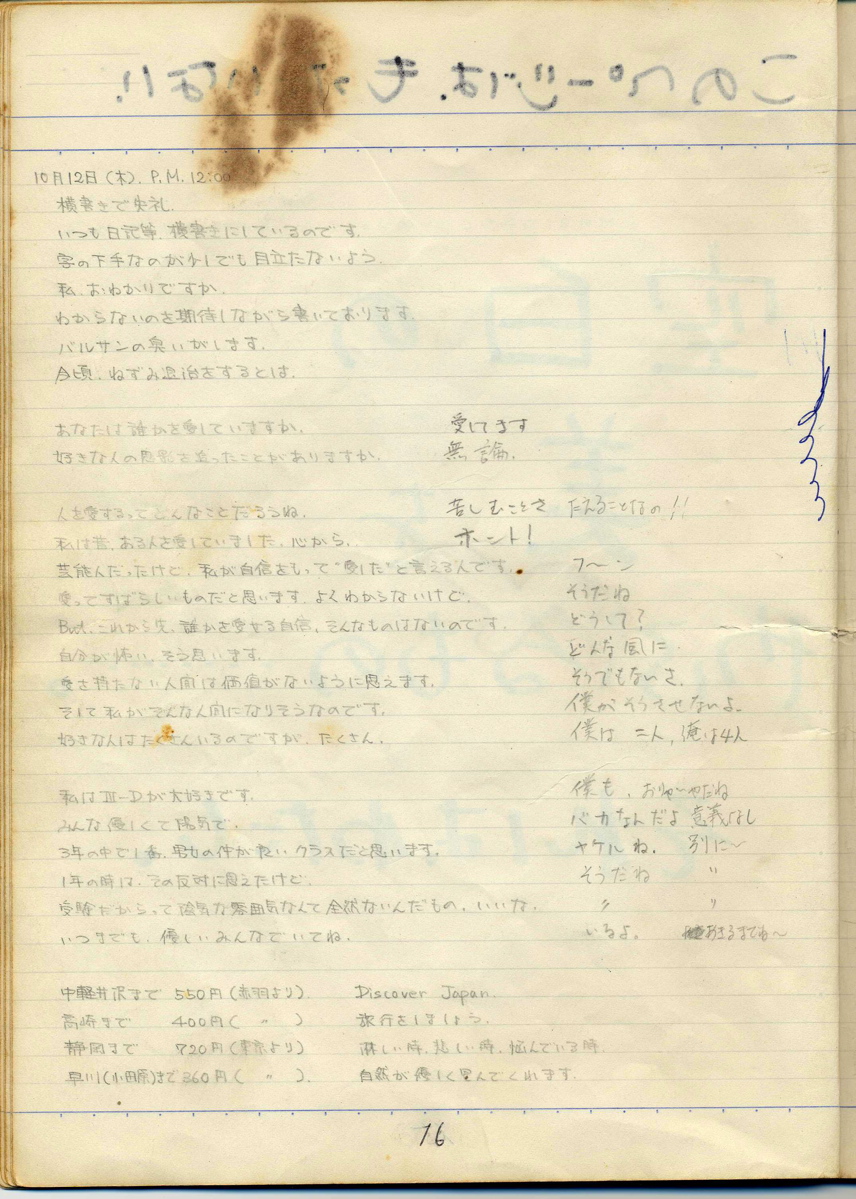 10月12日(木). P.M. 12:00
横書きで失礼.
いつも日記等、横書きにしているのです。
字の下手なのが少しでも目立たないよう.
私、おわかりですか.
わからないのを期待しながら書いております.
バルサンの臭いがします.
今頃、ねずみ退治をするとは.
あなたは誰かを愛していますか. 愛してます
好きな人の思影を追ったことがありますか. 無論.
人を愛するってどんなことだろうね. 苦しむことさ たえることなの!!
私は昔、ある人を愛していました。心から. ホント!
芸能人だったけど、私が自信をもって“愛した”と言える人です. フ〜ン
愛ってすばらしいものだと思います。よくわからないけど. そうだね
But、これから先、誰かを愛せる自信、そんなものはないのです. どうして?
自分が怖い、そう思います. どんな風に.
愛を持たない人間は価値がないように思えます. そうでもないさ.
そして私がそんな人間になりそうなのです. 僕がそうさせないよ。
好きな人はたくさんいるのですが、たくさん. 僕は 二人, 俺は4人
私はⅢ-Dが大好きです. 僕も,
みんな優しくて陽気で. バカなんだよ 意義なし
3年の中で1番、男女の仲が良いクラスだと思います. ヤケルね. 別に〜
1年の時は、その反対に思えたけど. そうだね 〃
受験だからって陰気な雰囲気なんて全然ないんだもの、いいな. 〃 〃
いつまでも、優しいみんなでいてね. いるよ。 あきるまでね〜
中軽井沢まで 550円(赤羽より). Discover Japan.
高崎まで 400円( 〃 ) 旅行をしましょう.
静岡まで 720円(東京より) 淋しい時、悲しい時、悩んでいる時.
早川(小田原)まで 360円( 〃 ). 自然が優しく包んでくれます.
16